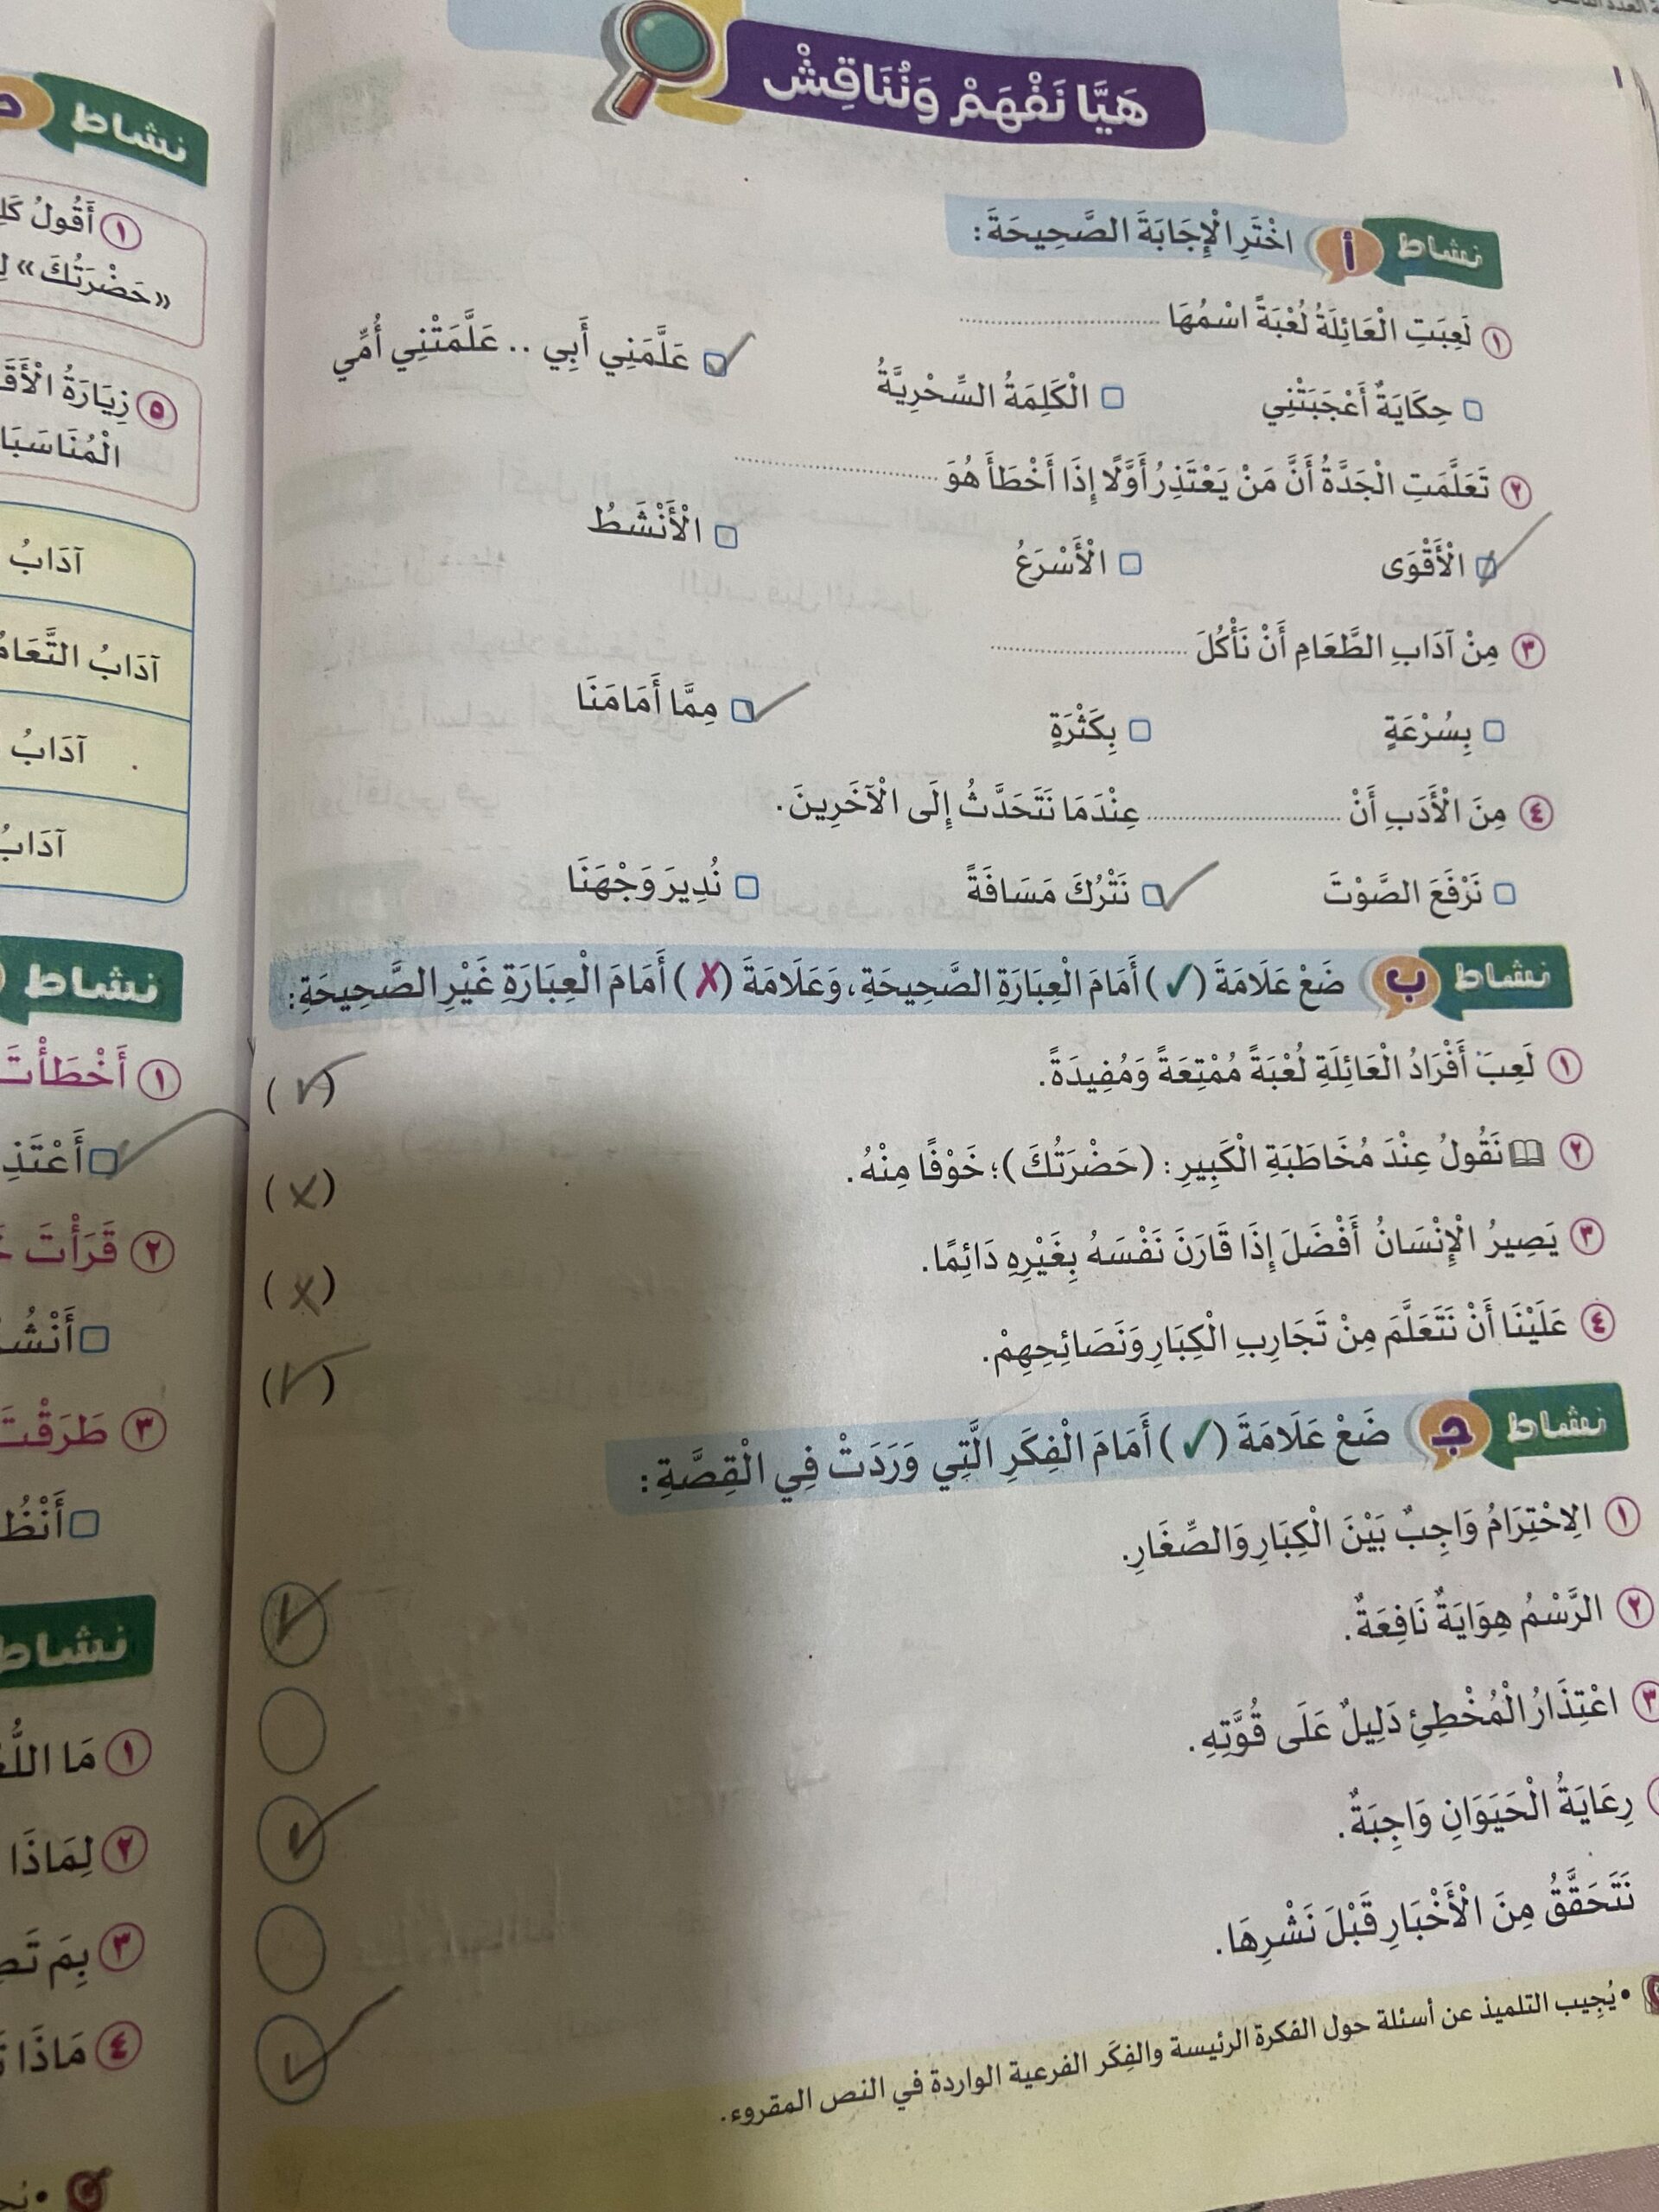 هَيَّا نَفْهَمْ وَنُنَاقِشْ
نشاط أ اخْتَرِ الْإِجَابَةَ الصَّحِيحَةَ:
١ لَعِبَتِ الْعَائِلَةُ لُعْبَةً اسْمُهَا ....................
حِكَايَةٌ أَعْجَبَتْنِي الْكَلِمَةُ السِّحْرِيَّةُ ✓ عَلَّمَنِي أَبِي .. عَلَّمَتْنِي أُمِّي
٢ تَعَلَّمَتِ الْجَدَّةُ أَنَّ مَنْ يَعْتَذِرُ أَوَّلًا إِذَا أَخْطَأَ هُوَ ....................
✓ الْأَقْوَى الْأَسْرَعُ الْأَنْشَطُ
٣ مِنْ آدَابِ الطَّعَامِ أَنْ نَأْكُلَ ....................
بِسُرْعَةٍ بِكَثْرَةٍ ✓ مِمَّا أَمَامَنَا
٤ مِنَ الْأَدَبِ أَنْ .................... عِنْدَمَا نَتَحَدَّثُ إِلَى الْآخَرِينَ.
نَرْفَعَ الصَّوْتَ ✓ نَتْرُكَ مَسَافَةً نُدِيرَ وَجْهَنَا
نشاط ب ضَعْ عَلَامَةَ (✓) أَمَامَ الْعِبَارَةِ الصَّحِيحَةِ، وَعَلَامَةَ (✗) أَمَامَ الْعِبَارَةِ غَيْرِ الصَّحِيحَةِ:
١ لَعِبَ أَفْرَادُ الْعَائِلَةِ لُعْبَةً مُمْتِعَةً وَمُفِيدَةً. (✓)
٢ نَقُولُ عِنْدَ مُخَاطَبَةِ الْكَبِيرِ: (حَضْرَتُكَ)؛ خَوْفًا مِنْهُ. (✗)
٣ يَصِيرُ الْإِنْسَانُ أَفْضَلَ إِذَا قَارَنَ نَفْسَهُ بِغَيْرِهِ دَائِمًا. (✗)
٤ عَلَيْنَا أَنْ نَتَعَلَّمَ مِنْ تَجَارِبِ الْكِبَارِ وَنَصَائِحِهِمْ. (✓)
نشاط ج ضَعْ عَلَامَةَ (✓) أَمَامَ الْفِكَرِ الَّتِي وَرَدَتْ فِي الْقِصَّةِ:
١ الِاحْتِرَامُ وَاجِبٌ بَيْنَ الْكِبَارِ وَالصِّغَارِ. ✓
٢ الرَّسْمُ هِوَايَةٌ نَافِعَةٌ.
٣ اعْتِذَارُ الْمُخْطِئِ دَلِيلٌ عَلَى قُوَّتِهِ. ✓
رِعَايَةُ الْحَيَوَانِ وَاجِبَةٌ.
نَتَحَقَّقُ مِنَ الْأَخْبَارِ قَبْلَ نَشْرِهَا. ✓
• يُجِيب التلميذ عن أسئلة حول الفكرة الرئيسة والفِكَر الفرعية الواردة في النص المقروء.
نشاط
١ أَقُولُ
«حَضْرَتُكَ»
٥ زِيَارَةُ
الْمُنَاسَبَا
آدَابُ
آدَابُ
آدَابُ
آدَابُ
نشاط
١ أَخْطَأْتَ
✓
٢ قَرَأْتَ
٣ طَرَقْتَ
نشاط
١ مَا
٢ لِمَاذَا
٣ بِمَ
٤ مَاذَا